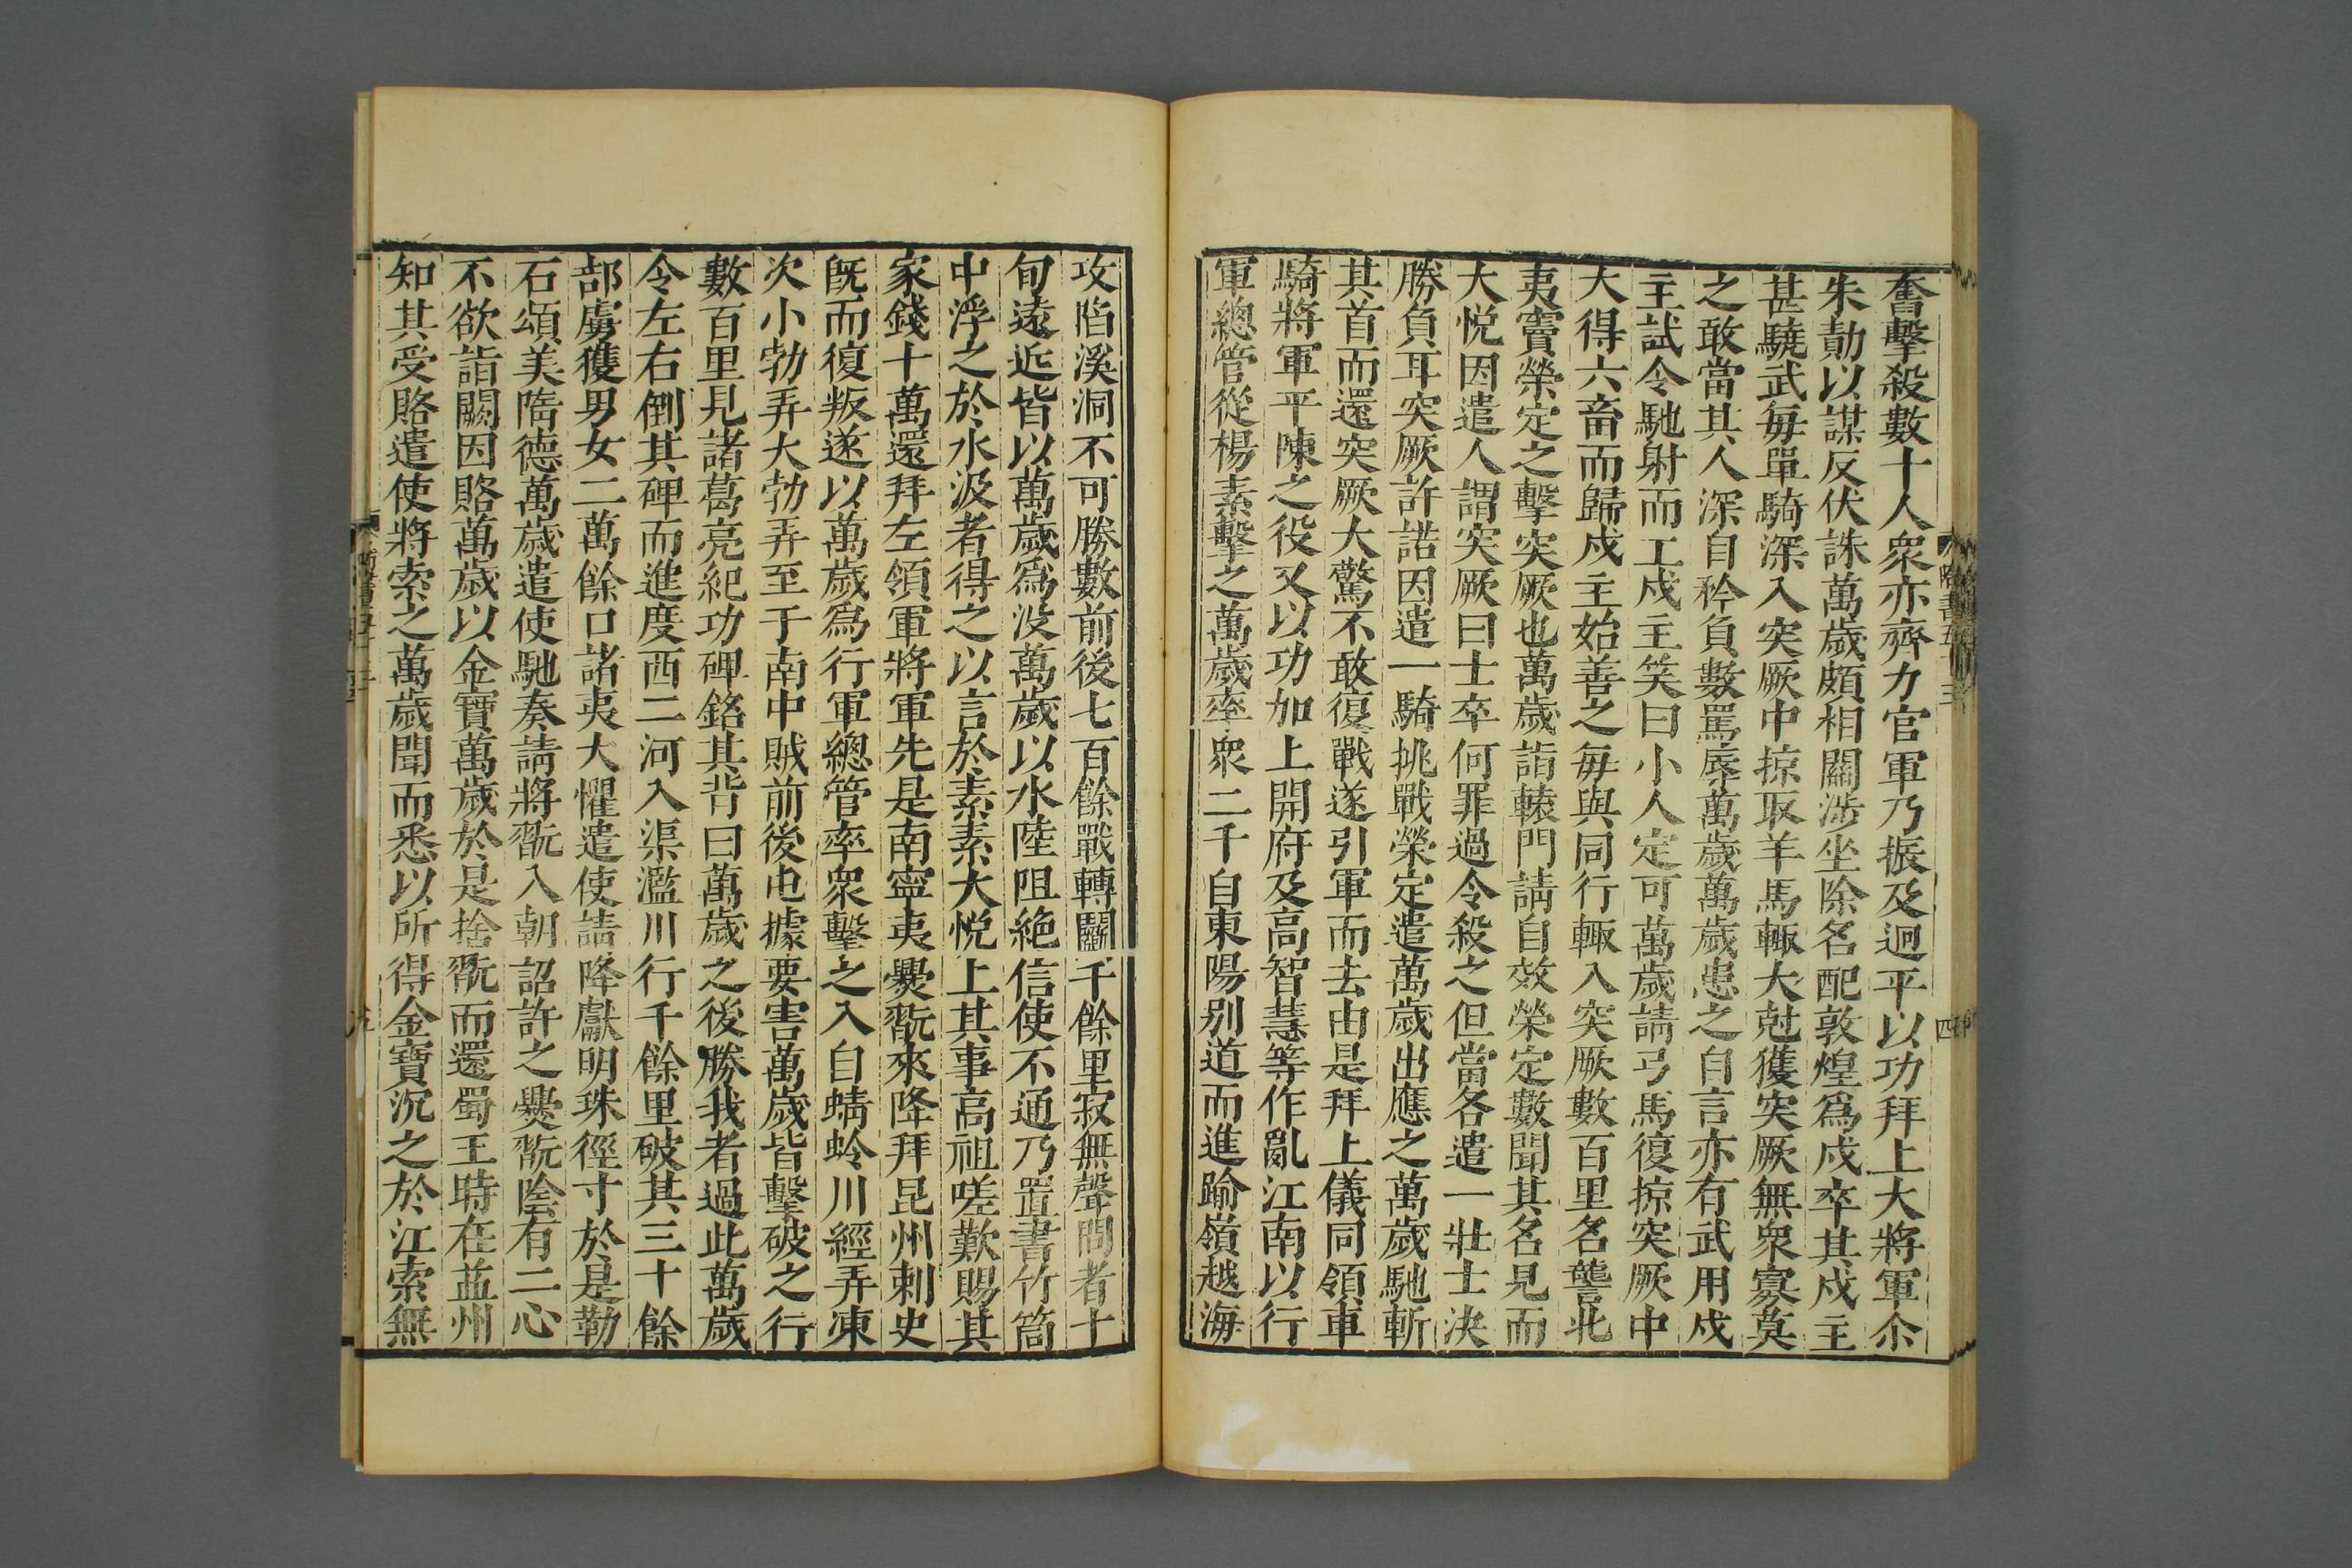 奮擊殺數十人衆亦齊力官軍乃振及迥平以功拜上大將軍尒
朱勣以謀反伏誅萬歲頗相關涉坐除名配敦煌爲戍卒其戍主
甚驍武每單騎深入突厥中掠取羊馬輙大尅獲突厥無衆寡莫
之敢當其人深自矜負數罵辱萬歲萬歲患之自言亦有武用戍
主試令馳射而工戍主笑曰小人定可萬歲請弓馬復掠突厥中
大得六畜而歸戍主始善之每與同行輙入突厥數百里名讋北
夷竇榮定之擊突厥也萬歲詣轅門請自效榮定數聞其名見而
大悅因遣人謂突厥曰士卒何罪過令殺之但當各遣一壯士決
勝負耳突厥許諾因遣一騎挑戰榮定遣萬歲出應之萬歲馳斬
其首而還突厥大驚不敢復戰遂引軍而去由是拜上儀同領車
騎將軍平陳之役又以功加上開府及高智慧等作亂江南以行
軍總管從楊素擊之萬歲率衆二千自東陽别道而進踰嶺越海
攻陷溪洞不可勝數前後七百餘戰轉鬭千餘里寂無聲問者十
旬遠近皆以萬歲爲没萬歲以水陸阻絶信使不通乃置書竹筩
中浮之於水汲者得之以言於素素大悅上其事高祖嗟歎賜其
家錢十萬還拜左領軍將軍先是南寧夷爨翫來降拜昆州刺史
旣而復叛遂以萬歲爲行軍總管率衆擊之入自蜻蛉川經弄凍
次小勃弄大勃弄至于南中賊前後屯據要害萬歲皆擊破之行
數百里見諸葛亮紀功碑銘其背曰萬歲之後勝我者過此萬歲
令左右倒其碑而進度西二河入渠濫川行千餘里破其三十餘
部虜獲男女二萬餘口諸夷大懼遣使請降獻明珠徑寸於是勒
石頌美隋德萬歲遣使馳奏請將翫入朝詔許之爨翫陰有二心
不欲詣闕因賂萬歲以金寶萬歲於是捨翫而還蜀王時在益州
知其受賂遣使將索之萬歲聞而悉以所得金寶沉之於江索無